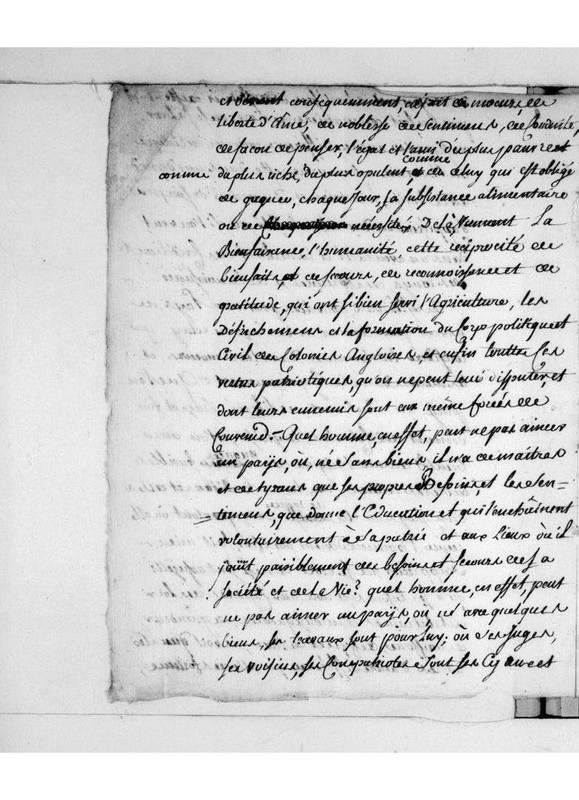 et devient consequemment, de moeurs de
liberté d'ame, de noblesse de sentimens, de
de facon de penser, l'egal et l'ami du plus pauvre et
comme du plus riche, du plus opulent comme de celuy qui est obligé
de gagner, chaque jour, sa subsistance alimentaire
ou de nécéssité, De là Viennent La
Bienfaisence, l'humanité, cette reciprocité de
bienfaits, de secours, de reconnoissence et de
gratitude, qui ont si bien servi l'Agriculture, les
Défrichemens et la formation du Corps politique et
Civil des Colonies Angloises, et enfin toutes Ces
vertus patriotiques, qu'on ne peut leur disputer et
dont leurs ennemis sont eux même forcés de
Convenir. - Quel homme, en effet, peut ne pas aimer
un paÿs, où, né sans biens il n'a de maitres
et de tyrans que ses propres Besoins, et les Sen=
=temens, que donne l'Education et qui l'enchainent
volontairement à sa patrie et aux Lieux où il
joüit paisiblement des besoins et secours de la
société et de le Vie? quel homme, en effet, peut
ne pas aimer un paÿs, où né avec quelques
biens, ses travaux sont pour luy; où ses Juges,
ses voisins, ses Compatriotes sont ses